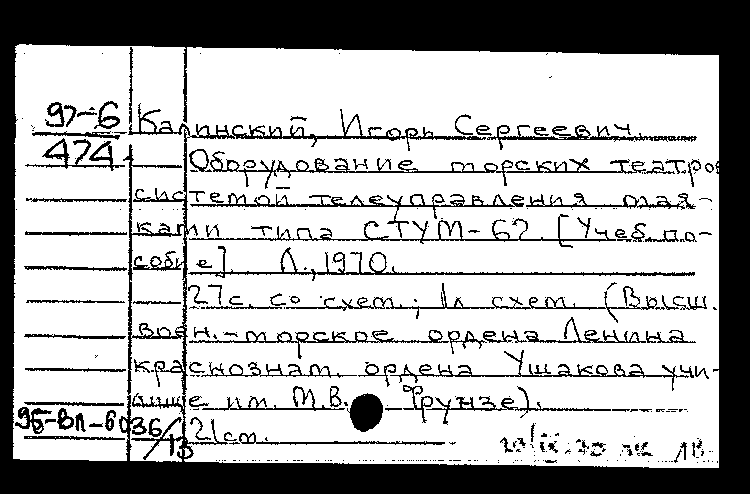 97-6 Калинский, Игорь Сергеевич.
474 Оборудование морских театров
системой телеуправления мая-
ками типа СТУМ-62. [Учеб. по-
собие]. Л., 1970.
27с. со схем.; 1л схем. (Высш.
воен.-морское ордена Ленина
краснознам. ордена Ушакова учи-
лище им. М.В. Фрунзе).
95-ВЛ-6036/13 21см.